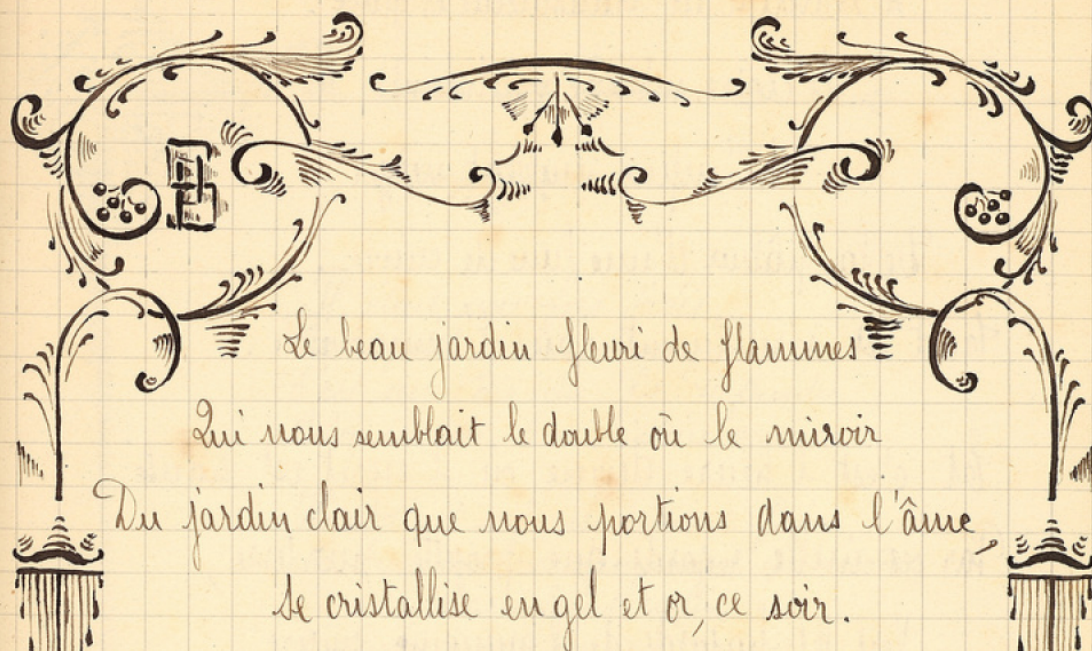 Le beau jardin fleuri de flammes
Qui nous semblait le double où le miroir
Du jardin clair que nous portions dans l'âme,
Se cristallise en gel et or, ce soir.